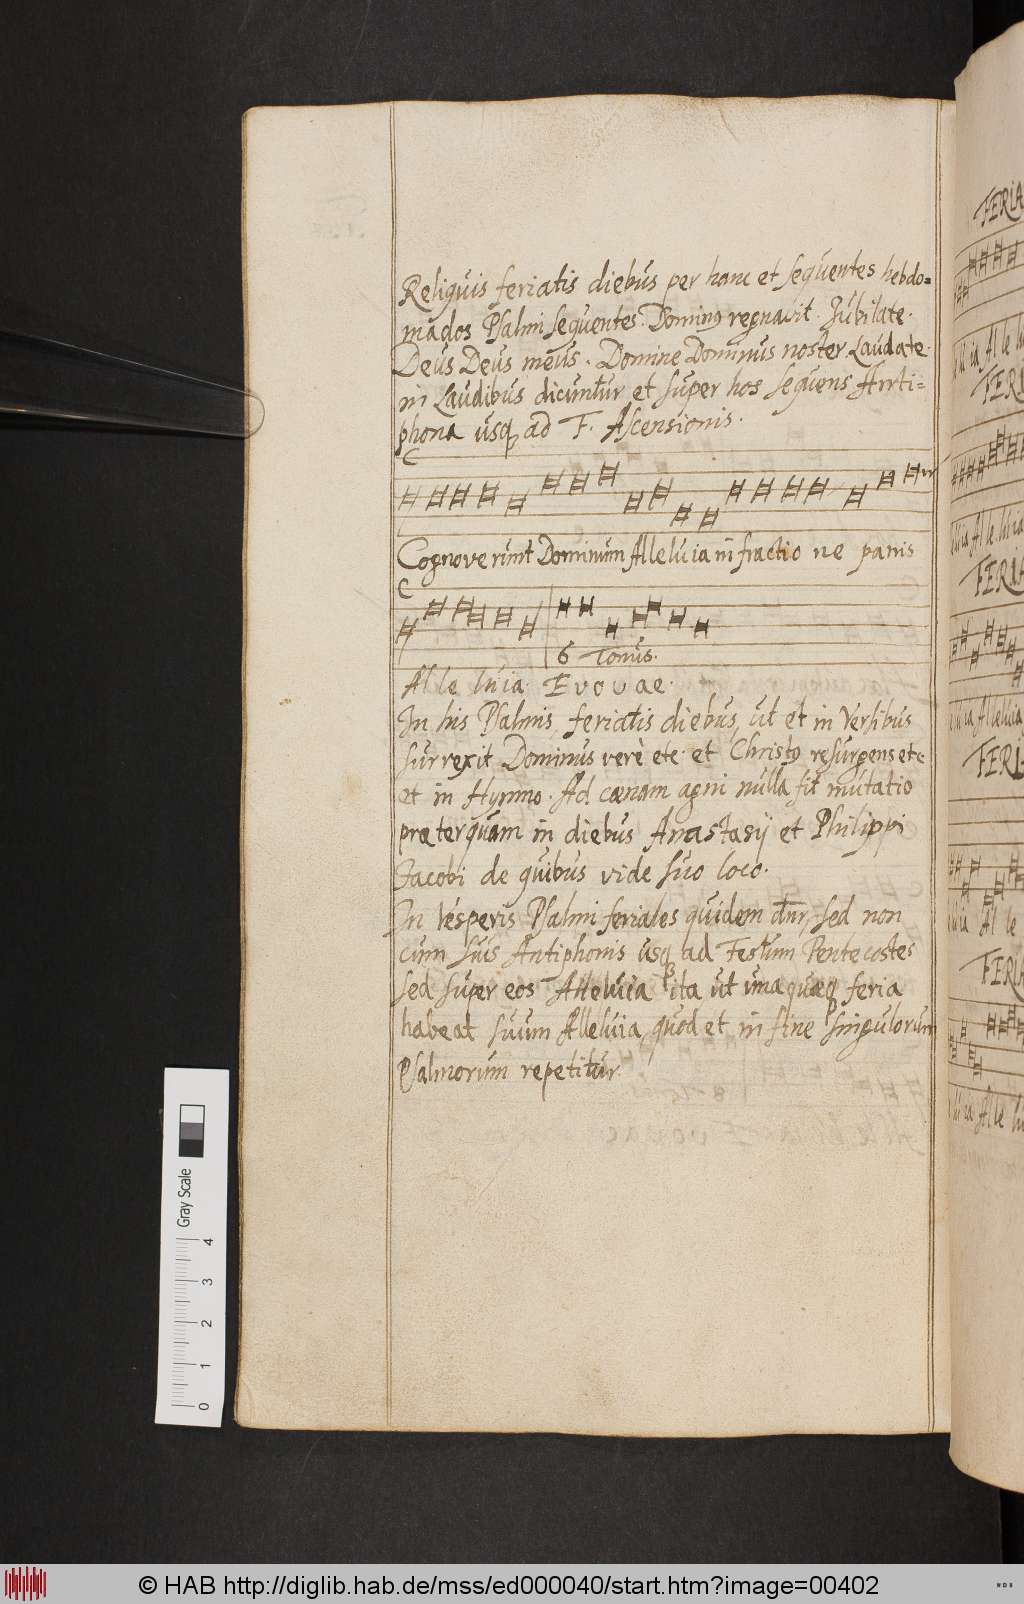 Reliquis feriatis diebus per hanc et sequentes hebdo=
mados Psalmi sequentes. Dominus regnavit. Jubilate.
Deus Deus meus. Domine Dominus noster Laudate.
in Laudibus dicuntur et super hos sequens Anti=
phona usq ad F. Ascensionis.
Cognoverunt Dominum Alleluia in fractio ne panis
6 Tonus.
Al le luia. Evovae.
In his Psalmis, feriatis diebus, ut et in Versibus
surrexit Dominus verè etc. et Christus resurgens etc
et in Hymno. Ad cœnam agni nulla fit mutatio
præterquam in diebus Anastasij et Philippi
Jacobi de quibus vide suo loco.
In Vesperis Psalmi feriales quidem dnr, sed non
cum suis Antiphonis usq ad Festum Pentecostes
sed super eos Alleluia ita ut unaquæq feria
habeat suum Alleluia, quod et in fine singulorum
Psalmorum repetitur.
FERIA
luia Al le lu
FERI
luia Al le luia
FERIA
luia Alleluia
FERI
luia Al le
FERIA
luia Al le lu
Gray Scale
0 1 2 3 4
© HAB http://diglib.hab.de/mss/ed000040/start.htm?image=00402